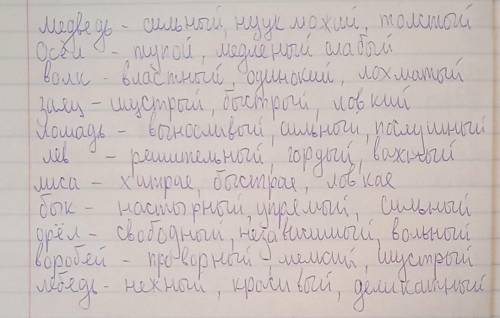 медведь - сильный, неуклюжий, толстый
Осёл - тупой, медленый слабый
волк - властный, одинокий, лохматый
заяц - шустрый, быстрый, ловкий
Лошадь - выносливый, сильный, послушный
лев - решительный, гордый, важный
лиса - хитрае, быстрае, ловкае
бык - настырный, упрямый, сильный
орёл - свободный, независимый, вольный
воробей - проворный, шустрый
лебедь - нежный, красивый, деликатный